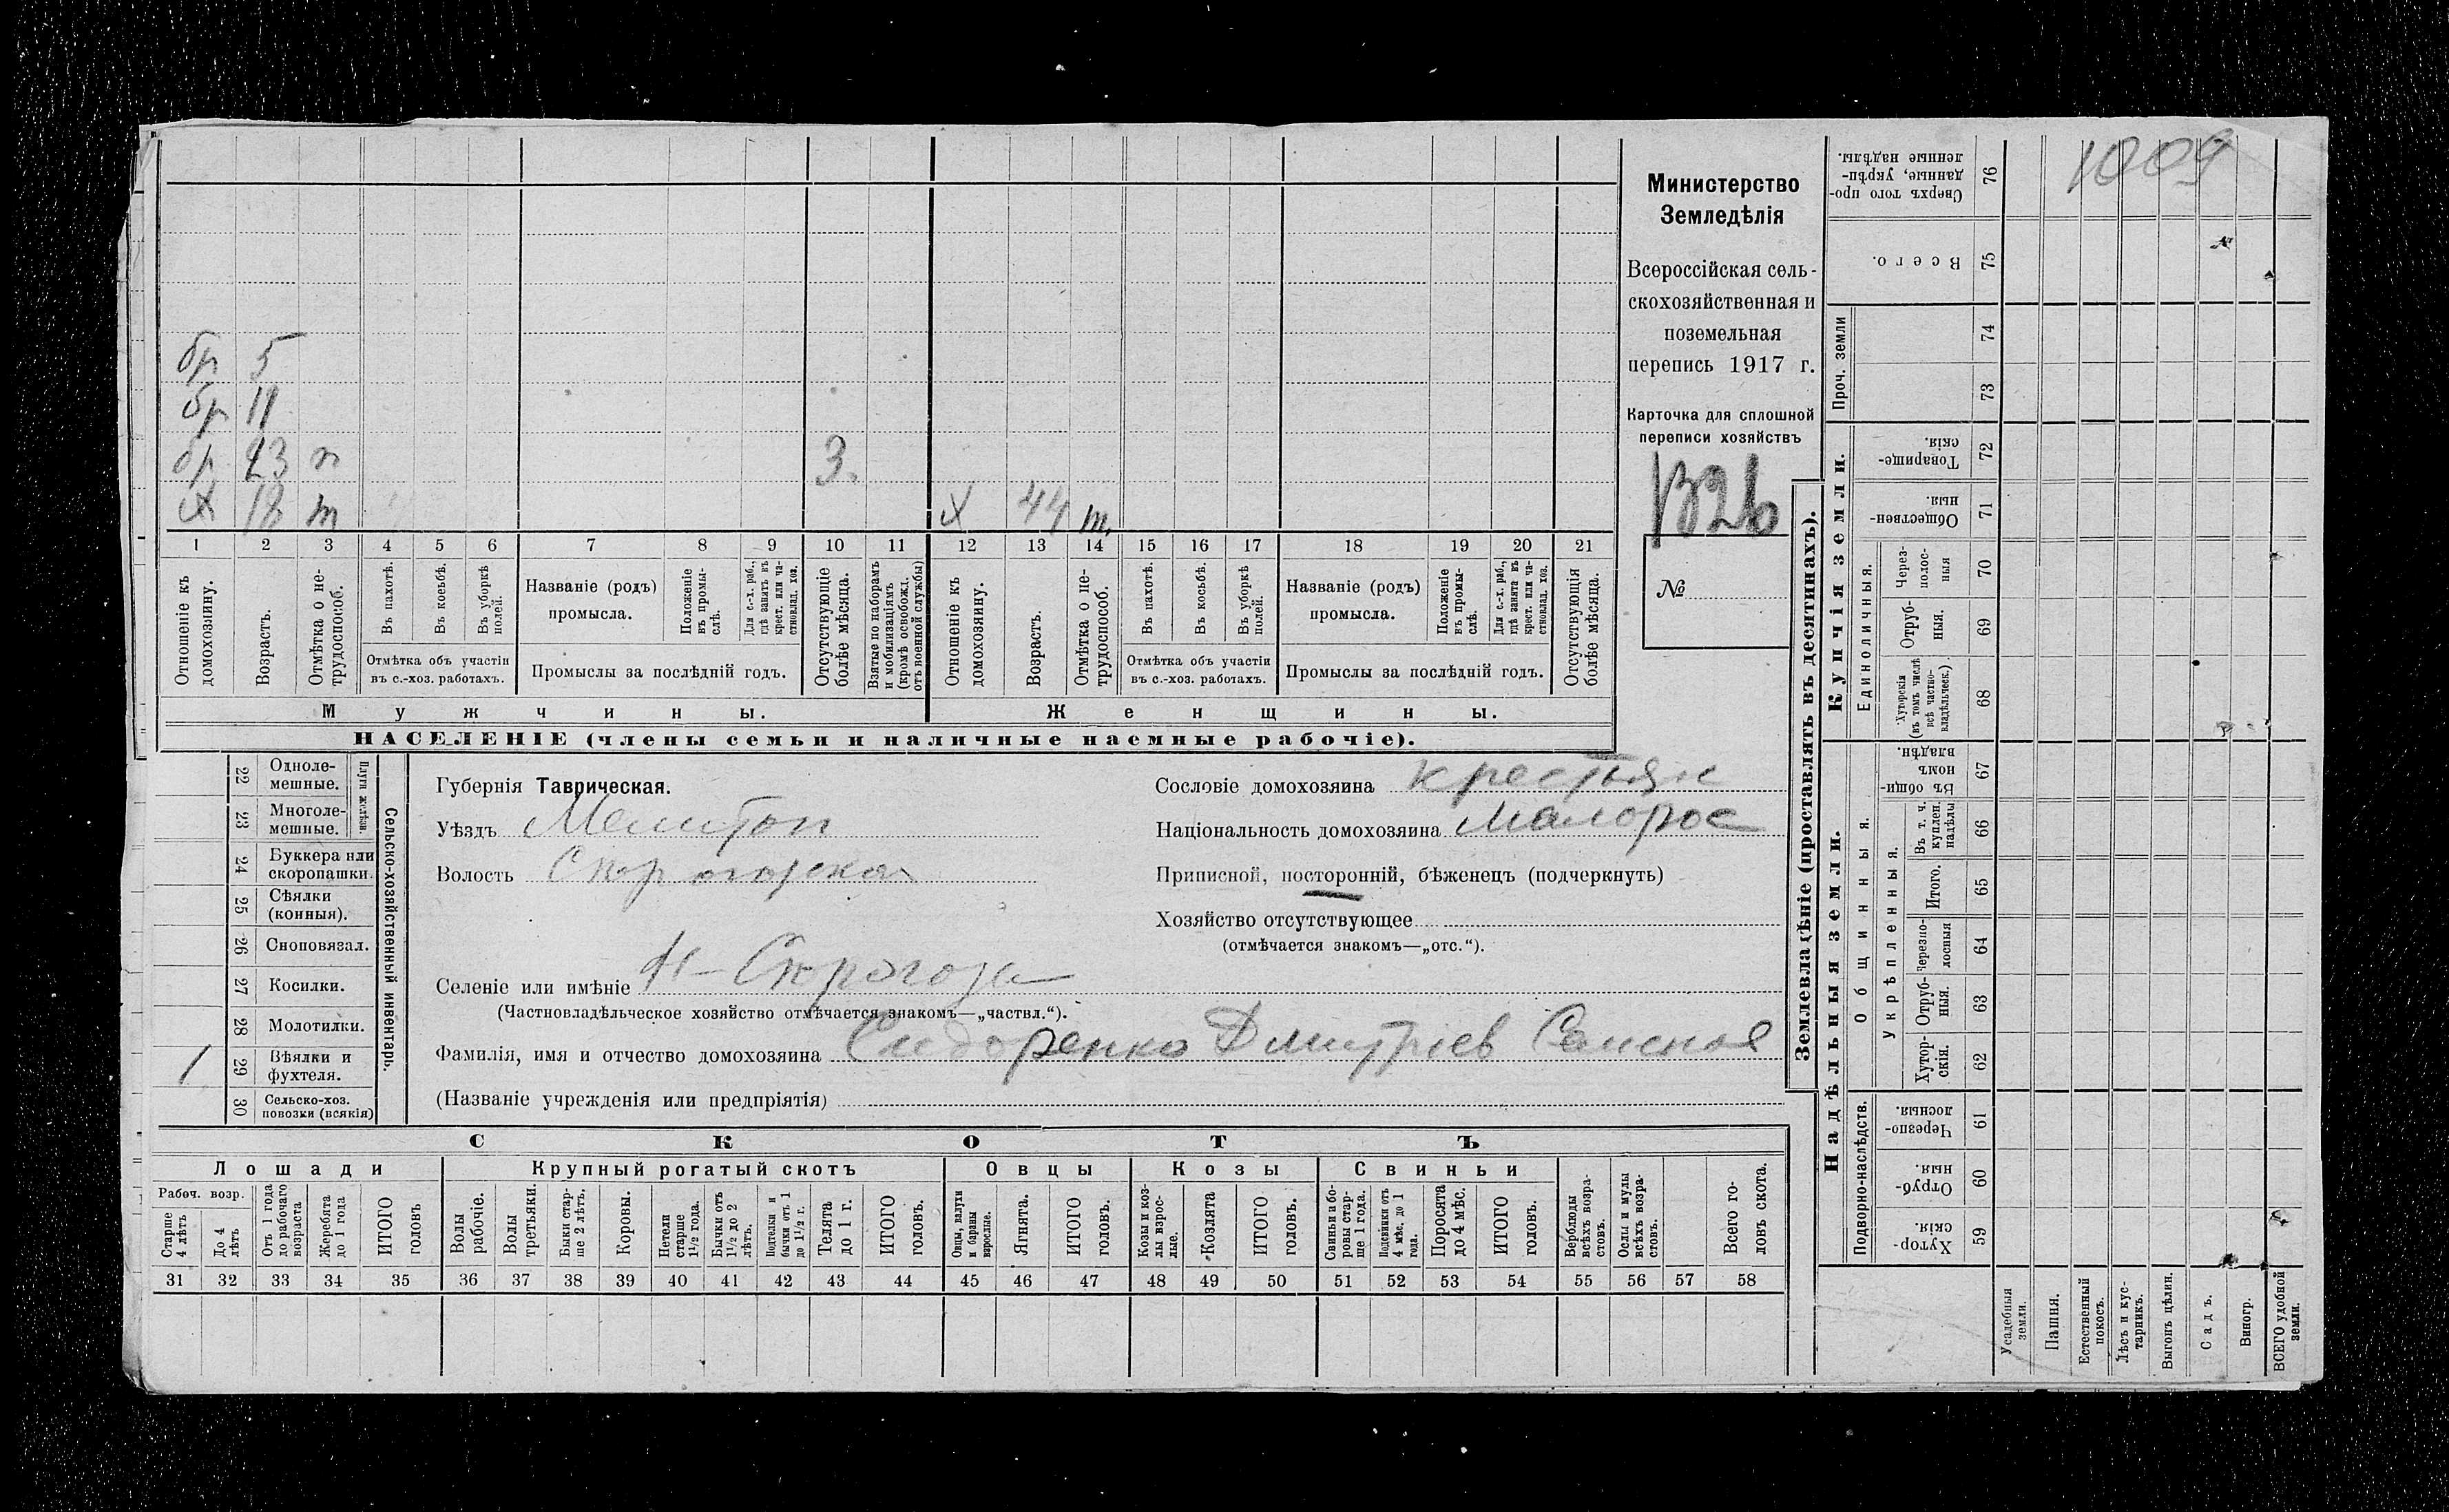 1009
бр 5
бр 11
бр 23 п 3.
х 18 т х 44 т
1 2 3 4 5 6 7 8 9 10 11 12 13 14 15 16 17 18 19 20 21
Отношеніе къ домохозяину.
Возрастъ.
Отмѣтка о не-трудоспособ.
Въ пахотѣ.
Въ косьбѣ.
Въ уборкѣ полей.
Отмѣтка объ участіи въ с.-хоз. работахъ.
Названіе (родъ) промысла.
Положеніе въ промы-слѣ.
Для с.-х. раб., гдѣ занятъ въ крест. или ча-стновлад. хоз.
Промыслы за послѣдній годъ.
Отсутствующіе болѣе мѣсяца.
Взятые по наборамъ и мобилизаціямъ (кромѣ освобожд. отъ военной службы)
Отношеніе къ домохозяину.
Возрастъ.
Отмѣтка о не-трудоспособ.
Въ пахотѣ.
Въ косьбѣ.
Въ уборкѣ полей.
Отмѣтка объ участіи въ с.-хоз. работахъ.
Названіе (родъ) промысла.
Положеніе въ промы-слѣ.
Для с.-х. раб., гдѣ занята въ крест. или ча-стновлад. хоз.
Промыслы за послѣдній годъ.
Отсутствующія болѣе мѣсяца.
Мужчины.
Женщины.
НАСЕЛЕНІЕ (члены семьи и наличные наемные рабочіе).
Министерство
Земледѣлія
Всероссійская сель-
скохозяйственная и
поземельная
перепись 1917 г.
Карточка для сплошной
переписи хозяйствъ
№
22 Одноле-мешные.
23 Многоле-мешные.
Плуги желѣзн.
24 Буккера или скоропашки.
25 Сѣялки (конныя).
26 Сноповязал.
27 Косилки.
28 Молотилки.
1 29 Вѣялки и фухтеля.
30 Сельско-хоз. повозки (всякія)
Сельско-хозяйственный инвентарь.
Губернія Таврическая.
Уѣздъ Мелитоп
Волость
Сословіе домохозяина крестьян
Національность домохозяина Малорос
Приписной, посторонній, бѣженецъ (подчеркнуть)
Хозяйство отсутствующее
(отмѣчается знакомъ—„отс.“).
Селеніе или имѣніе
(Частновладѣльческое хозяйство отмѣчается знакомъ—„частвл.“).
Фамилія, имя и отчество домохозяина Сидоренко Дмитріев
(Названіе учрежденія или предпріятія)
СКОТЪ
Лошади
Крупный рогатый скотъ
Овцы
Козы
Свиньи
Рабоч. возр.
Старше 4 лѣтъ
До 4 лѣтъ
Отъ 1 года до рабочаго возраста
Жеребята до 1 года
ИТОГО головъ
Волы рабочіе.
Волы третьяки.
Быки стар-ше 2 лѣтъ.
Коровы.
Нетели старше 1½ года.
Бычки отъ 1½ до 2 лѣтъ.
Подтелки и бычки отъ 1 до 1½ г.
Телята до 1 г.
ИТОГО головъ.
Овцы, валухи и бараны взрослые.
Ягнята.
ИТОГО головъ.
Козы и коз-лы взрос-лые.
Козлята
ИТОГО головъ.
Свиньи и бо-ровы стар-ше 1 года.
Подсвинки отъ 4 мѣс. до 1 года.
Поросята до 4 мѣс.
ИТОГО головъ.
Верблюды всѣхъ возра-стовъ.
Ослы и мулы всѣхъ возра-стовъ.
Всего го-ловъ скота.
31 32 33 34 35 36 37 38 39 40 41 42 43 44 45 46 47 48 49 50 51 52 53 54 55 56 57 58
Землевладѣніе (проставлять въ десятинахъ).
Надѣльныя земли.
Купчія земли.
Проч. земли
Подворно-наслѣдств.
Общинныя.
Укрѣпленныя.
Единоличныя.
Сверхъ того про-данные, укрѣп-ленные надѣлы. 76
Всего. 75
74
73
Товарище-скія. 72
Обществен-ныя. 71
Через-полос-ныя 70
Отруб-ныя. 69
Хуторскія (въ томъ числѣ всѣ частно-владѣльческ.) 68
Въ общи-номъ владѣн. 67
Въ т. ч. куплен. надѣлы 66
Итого. 65
Черезпо-лосныя 64
Отруб-ныя. 63
Хутор-скія. 62
Черезпо-лосныя. 61
Отруб-ныя. 60
Хутор-скія. 59
Усадебныя земли.
Пашня.
Естественный покосъ.
Лѣсъ и кус-тарникъ.
Выгонъ цѣлин.
Садъ.
Виногр.
ВСЕГО удобной земли.